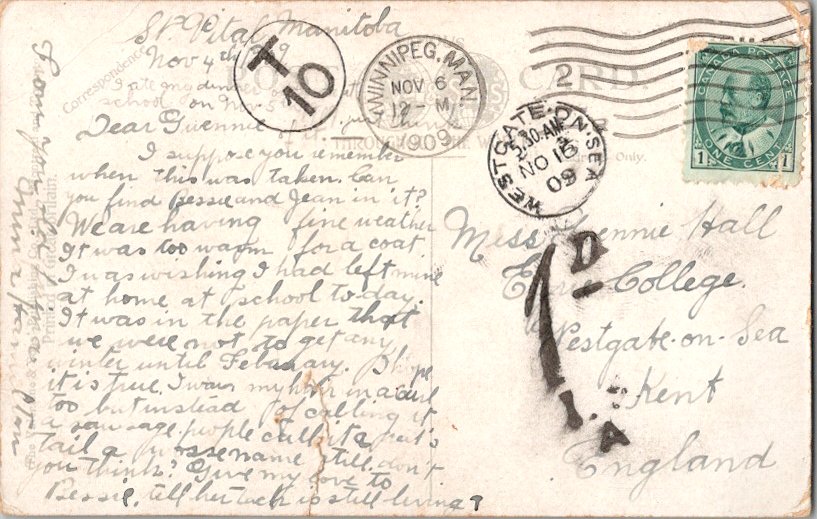 St. Vital Manitoba
Nov 4th 09
Correspondence
I ate my dinner at
school on Nov 5
Dear Gwennie
I suppose you remember
when this was taken. Can
you find Bessie and Jean in it?
We are having fine weather
It was too warm for a coat
I was wishing I had left mine
at home at school to day.
It was in the paper that
we were not to get any
winter until February. I hope
it is true. I wear my hair in a curl
too but instead of calling it
a sausage people call it a pert's
tail a worse name still don't
you think? Give my love to
Bessie, tell her is still living?
Printed in Great Britain.
T
10
WINNIPEG, MAN.
NOV 6
12 - M
1909
2
WESTGATE-ON-SEA
5.30 AM
NO 16
09
CARD
THROUGHOUT THE WORLD
Only.
CANADA POSTAGE
1 ONE CENT 1
Miss Gwennie Hall
College.
Westgate-on-Sea
Kent
England
1
D